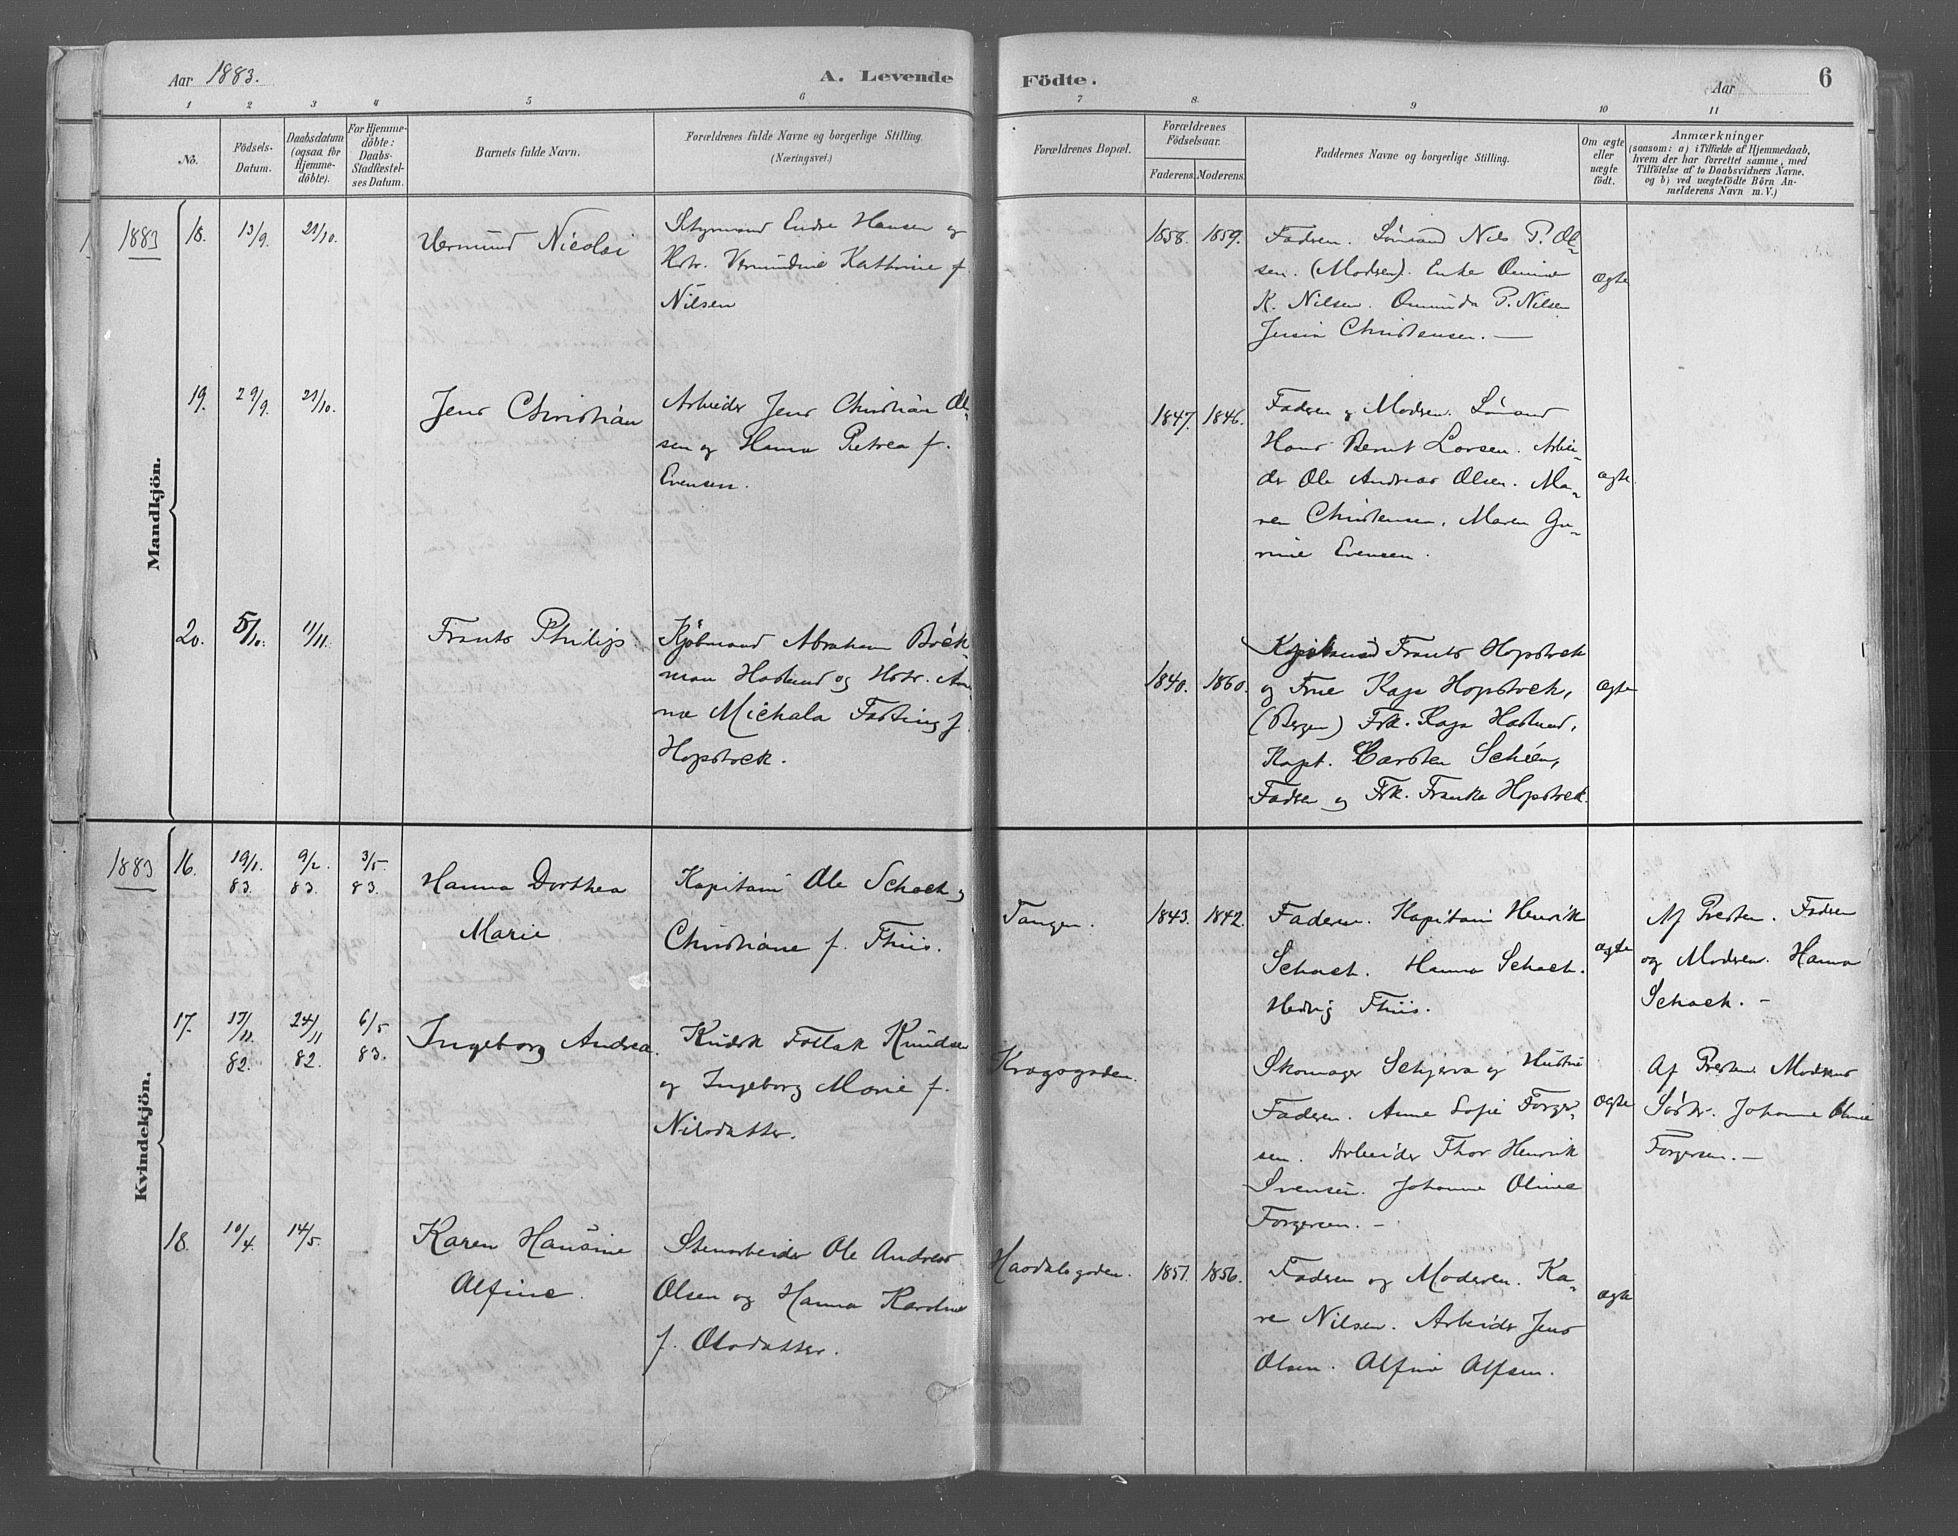 Aar 1883. A. Levende Födte. Aar 6
1 2 3 4 5 6 7 8. 9 10 11
No.
Födsels-
Datum.
Daabsdatum
(ogsaa for
Hjemme-
döbte).
For Hjemme-
döbte:
Daabs-
Stadfæstel-
ses Datum.
Barnets fulde Navn.
Forældrenes fulde Navne og borgerlige Stilling.
(Næringsvei.)
Forældrenes Bopæl.
Forældrenes
Födselsaar.
Faderens. Moderens.
Faddernes Navne og borgerlige Stilling.
Om ægte
eller
uægte
födt.
Anmærkninger
(saasom: a) i Tilfælde af Hjemmedaab,
hvem der har forrettet samme, med
Tilföielse af to Daabsvidners Navne,
og b) ved uægtefödte Börn An-
melderens Navn m. V.)
Mandkjön.
1883 18. 13/9. 21/10.
Vermund Nicolai
Styrmand Endre Hansen og
Hstr. Vermundine Kathrine f.
Nilsen
1858. 1859.
Faderen. Sömand Nils P. Ol-
sen. (Moderen). Enke
K. Nilsen. P. Nilsen
Christensen. —
ægte
19. 29/9. 21/10.
Jens Christian
Arbeider Jens Christian Ol-
sen og Hanna Petrea f.
Evensen.
1847. 1846.
Faderen og Moderen. Sömand
Hans Bernt Larsen. Arbei-
der Ole Andreas Olsen. Ma-
ren Christensen. Maren Gu-
rine Evensen.
ægte
20. 5/10. 11/11.
Frants Philip
Kjöbmand Abraham Böck-
man Haslund og Hstr. An-
na Michala Fasting f.
Hopstock.
1840. 1860.
Frants Hopstock
og Frue Kaja Hopstock,
(Bergen) Frk. Kaja Haslund,
Kapt. Carsten Schéen,
Faderen og Frk. Franka Hopstock.
ægte
Kvindekjön.
1883 16. 19/1. 83. 9/2. 83. 3/5. 83.
Hanna Dorthea
Marie
Kapitain Ole Schack og
Christiane f. Thiis.
Tangen.
1843. 1842.
Faderen. Kapitain Henrik
Schack. Hanna Schack.
Hedvig Thiis.
ægte
Af Presten. Faderen
og Moderen. Hanna
Schack. —
17. 24/11 82. 6/5 83.
Ingeborg Andrea.
Kudsk Follak Knudsen
og Ingeborg Marie f.
Nilsdatter.
Kragsgaden.
Skomager Schjerva og Hustru
Faderen. Anne Sofie Torger-
sen. Arbeider Thor Henrik
Svensen. Johanne Oline
Torgersen. —
ægte
Af Presten. Moderens
Söster. Johanne Oline
Torgersen. —
18. 10/4. 14/5.
Karen Hansine
Alfine.
Stenarbeider Ole Andreas
Olsen og Hanna Karoline
f. Olsdatter.
Havdalsgaden.
1851. 1856.
Faderen og Moderen. Ka-
ren Nilsen. Arbeider Jens
Olsen. Alfine Alfsen.
ægte